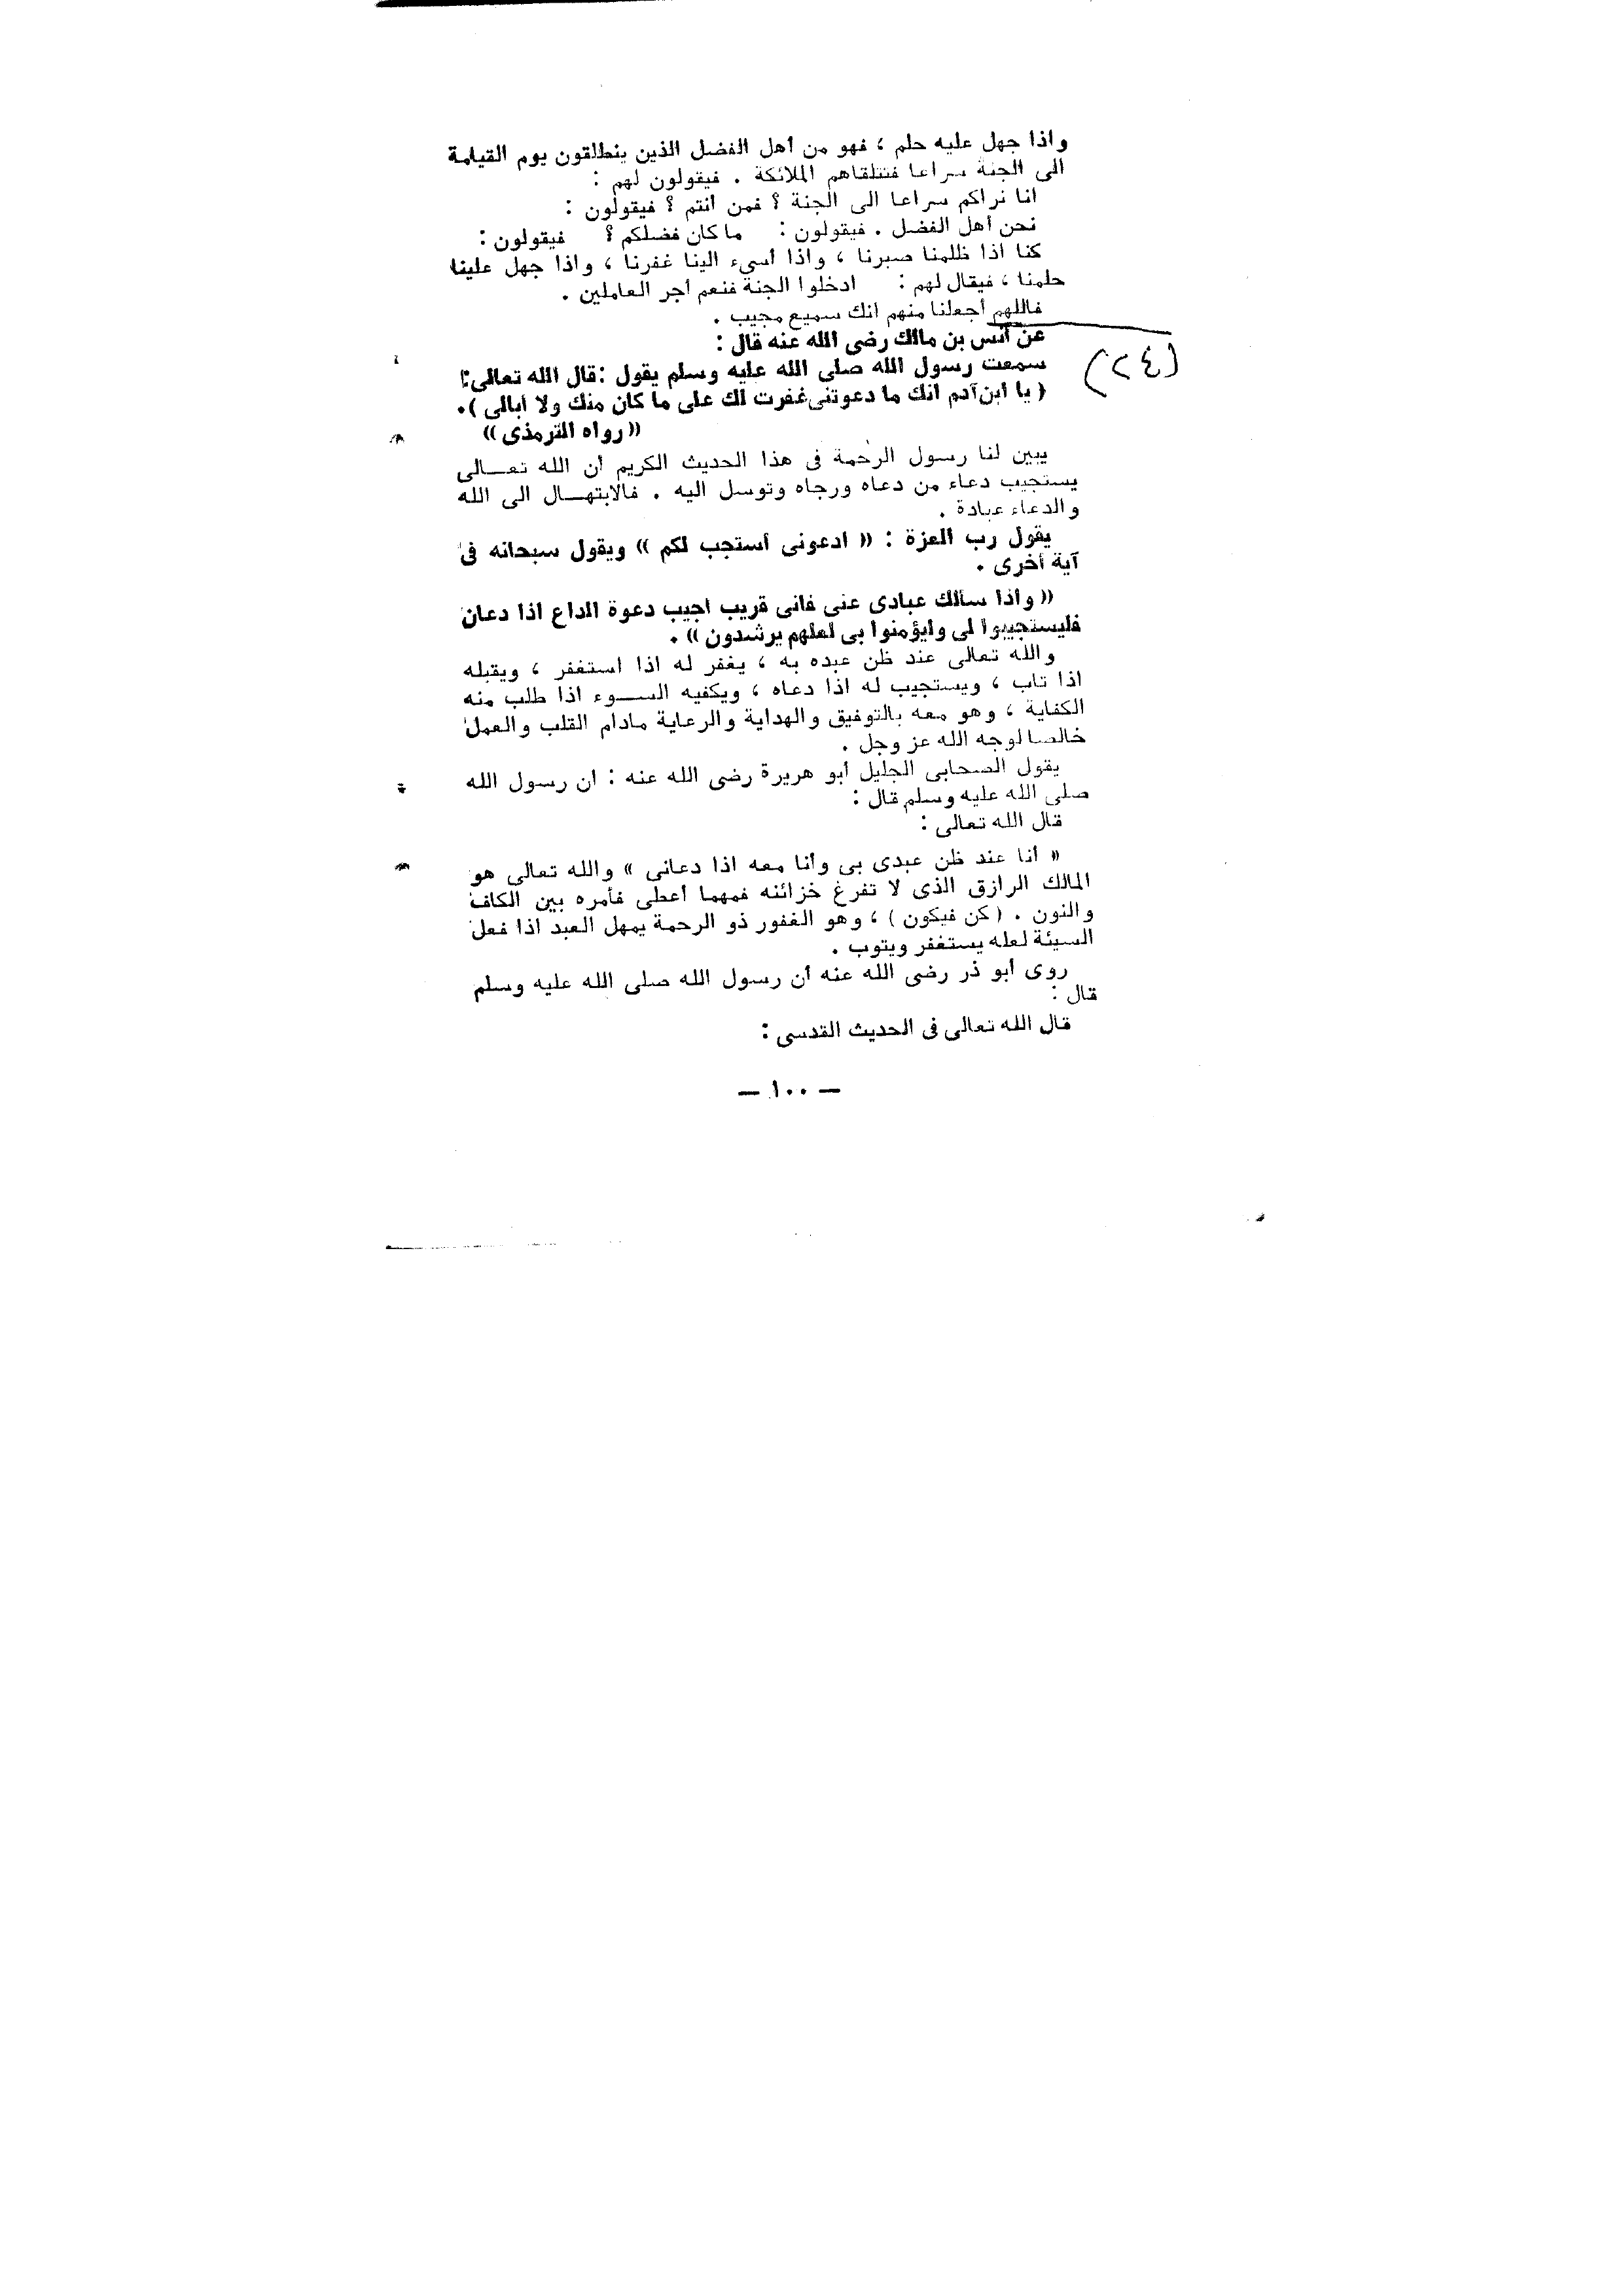 واذا جهل عليه حلم ، فهو من أهل الفضل الذين ينطلقون يوم القيامة
الى الجنة سراعا فتتلقاهم الملائكة . فيقولون لهم :
انا نراكم سراعا الى الجنة ؟ فمن أنتم ؟ فيقولون :
نحن أهل الفضل . فيقولون : ما كان فضلكم ؟ فيقولون :
كنا اذا ظلمنا صبرنا ، واذا أسىء الينا غفرنا ، واذا جهل علينا
حلمنا ، فيقال لهم : ادخلوا الجنة فنعم أجر العاملين .
فاللهم أجعلنا منهم انك سميع مجيب .
عن أنس بن مالك رضى الله عنه قال :
(٢٤)
سمعت رسول الله صلى الله عليه وسلم يقول : قال الله تعالى :
( يا ابن آدم انك ما دعوتنى غفرت لك على ما كان منك ولا أبالى ) .
« رواه الترمذى »
يبين لنا رسول الرحمة فى هذا الحديث الكريم أن الله تعـــالى
يستجيب دعاء من دعاه ورجاه وتوسل اليه . فالابتهـــال الى الله
والدعاء عبادة .
يقول رب العزة : « ادعونى أستجب لكم » ويقول سبحانه فى
آية أخرى .
« واذا سألك عبادى عنى فانى قريب اجيب دعوة الداع اذا دعان
فليستجيبوا لى وليؤمنوا بى لعلهم يرشدون » .
والله تعالى عند ظن عبده به ، يغفر له اذا استغفر ، ويقبله
اذا تاب ، ويستجيب له اذا دعاه ، ويكفيه الســـوء اذا طلب منه
الكفاية ، وهو معه بالتوفيق والهداية والرعاية مادام القلب والعمل
خالصا لوجه الله عز وجل .
يقول الصحابى الجليل أبو هريرة رضى الله عنه : ان رسول الله
صلى الله عليه وسلم قال :
قال الله تعالى :
« أنا عند ظن عبدى بى وأنا معه اذا دعانى » والله تعالى هو
المالك الرازق الذى لا تفرغ خزائنه فمهما أعطى فأمره بين الكاف
والنون . ( كن فيكون ) ، وهو الغفور ذو الرحمة يمهل العبد اذا فعل
السيئة لعله يستغفر ويتوب .
روى أبو ذر رضى الله عنه أن رسول الله صلى الله عليه وسلم
قال :
قال الله تعالى فى الحديث القدسى :
— ١٠٠ —